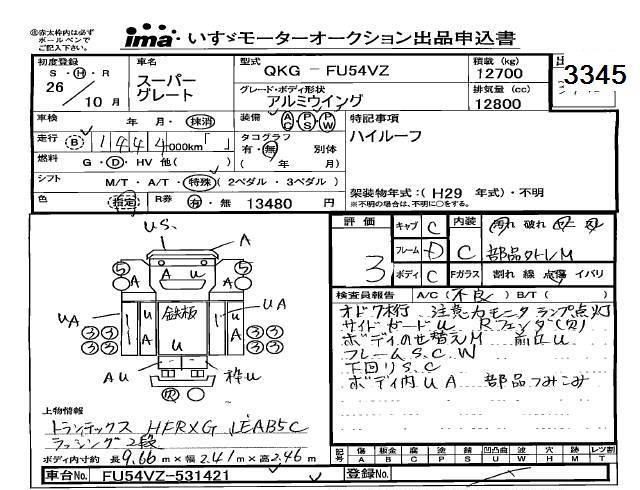 ㊟赤太枠内は必ず
ボールペンで
ご記入下さい。
ima・いすゞモーターオークション出品申込書
3345
初度登録
S・H・R
26
10 月
車名
スーパー
グレート
型式
QKG - FU54VZ
グレード・ボディ形状
アルミウイング
積載 (kg)
12700
排気量 (cc)
12800
車検 年 月・抹消
装備 AC PS PW
特記事項
ハイルーフ
走行 B 1444 000km
タコグラフ
有・無 別体
( 年 月)
燃料 G・D・HV 他( )
シフト M/T・A/T・特殊(2ペダル・3ペダル)
架装物年式:(H29 年式)・不明
※不明の場合は、不明に○をする。
色 指定 R券 有・無 13480 円
評価
3
キャブ C
フレーム D
ボディ C
内装
C
汚れ 破れ
部品外レM
Fガラス 割れ 線 点傷 イバリ
検査員報告 A/C(不良)B/T( )
オドク桁 注意力モニタランプ点灯
サイドガードU Rフェンダ(欠)
ボディのせ替えM 前回U
フレームS.C.W
下回りS.C
ボディ内UA 部品つみこみ
US.
A
5
5
A
A
U
A
UA
UA
U
A
鉄板
U
A
33
33
33
33
AU
枠U
上物情報
トランテックス HFRXG JEAB5C
ラッシング2段
ボディ内寸約 長9.66m×巾2.41m×高2.46m
記号 傷 板金 腐 塗 錆 凹凸曲 波 穴 跡 レツ割
A B C P S U W H M T
車台No. FU54VZ-531421
登録No.